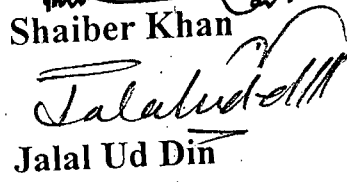 Shaiber Khan
Jalaluddin
Jalal Ud Din